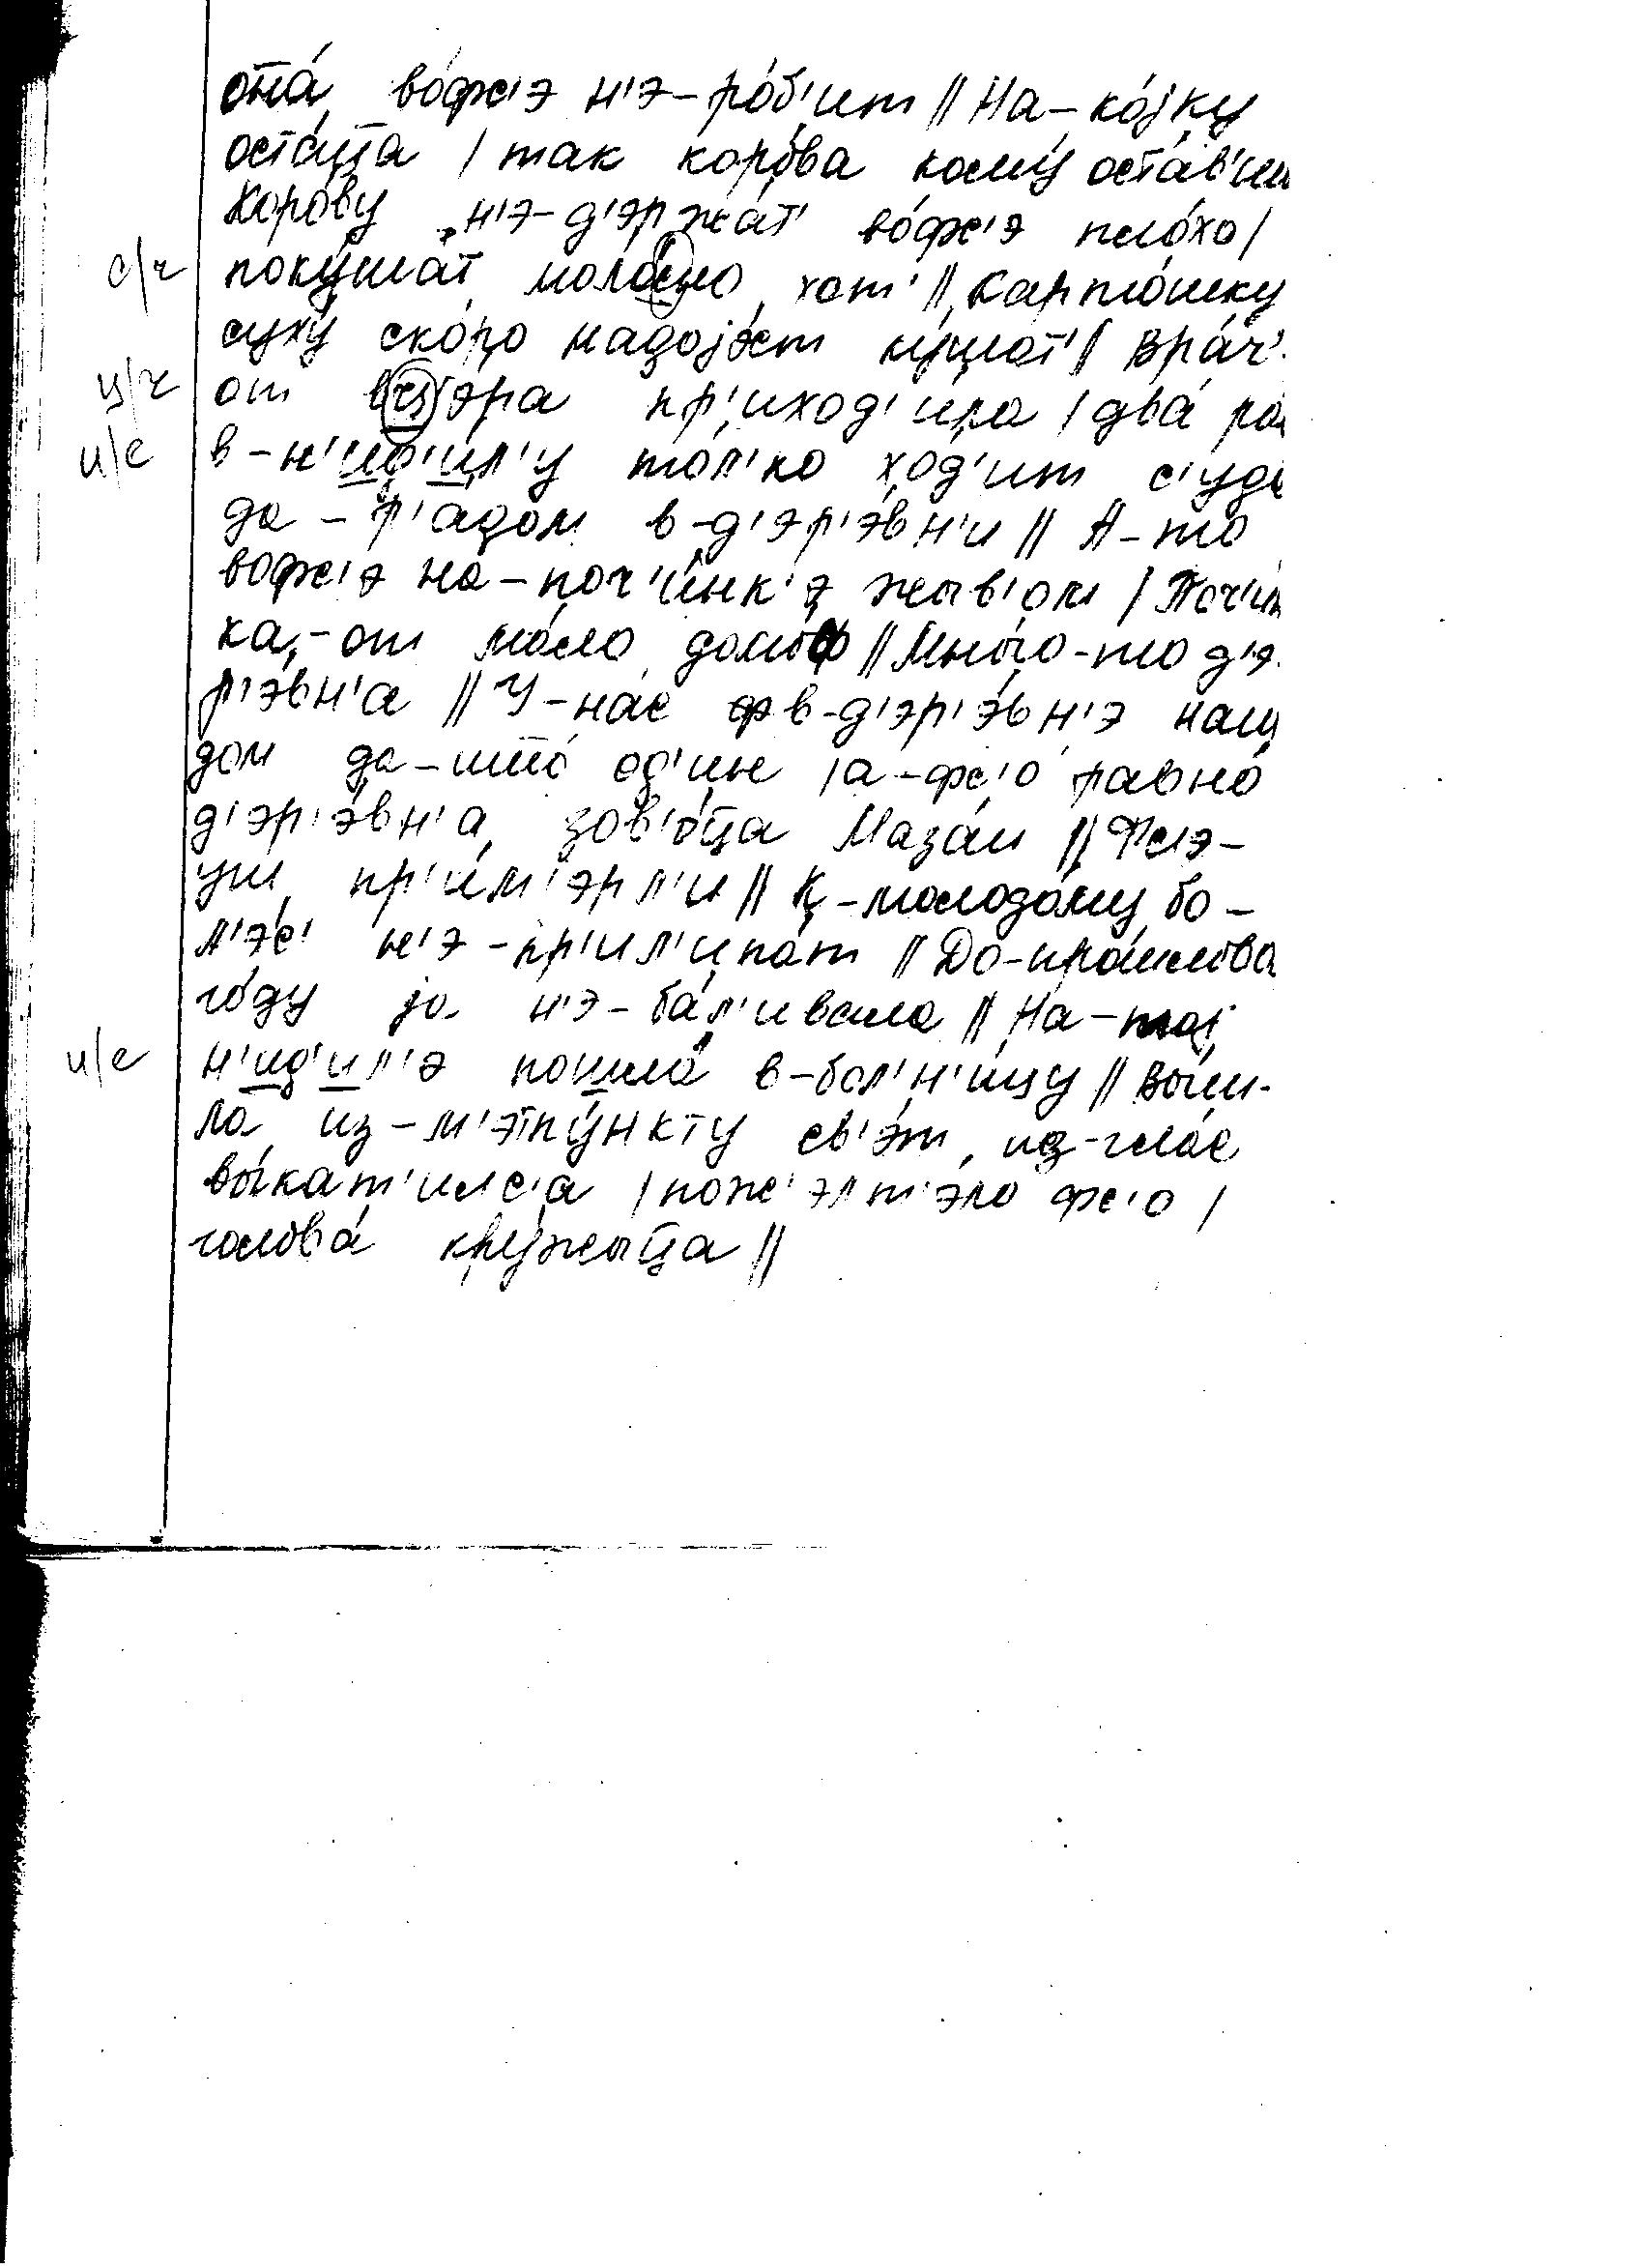 она́ во́фс'э н'э-ро́б'ит // На-ко́јку
оста́ц̅а / так коро́ва кому́ оста́в'иш
корову н'э-д'эржа́т' во́фс'э пло́хо /
с/ч поку́шат моло́сно хот' // Карто́шку
суху́ ско́ро надојэ́ст ку́шат' // Вра́ч'.
ц/ч от вц'эра пр'иход'ила / два́ ра
и/е в-н'ид'ил'у то́л'ко ход'ит с'уда
да - р'адом в-д'эр'э́вн'и // А-то
вофс'э на-поч'и́нк'э жыв'ом / Поч'ин
ка-от ма́ло домо́ф // Мно́го-то д'э.
р'э́вн'а // У-на́с в-д'эр'э́вн'э наш
дом да-што́ од'ин / а-фс'о́ равно́
д'эр'э́вн'а зов'о́ц̅а Маза́и // Фс'э-
уш пр'им'эрл'и // К-молодо́му бо-
л'э́с' н'э-пр'ил'ипа́т // До-про́шлова
го́ду ја н'э-ба́л'ивала // На-тој
и/е н'ид'ил'э пошла́ в-бол'н'и́цу // Вы́ш-
ла из-м'этпу́нкту св'э́т из-гла́с
вы́кат'илс'а / пож'элт'эло фс'о /
голова́ кру́жыц̅а //